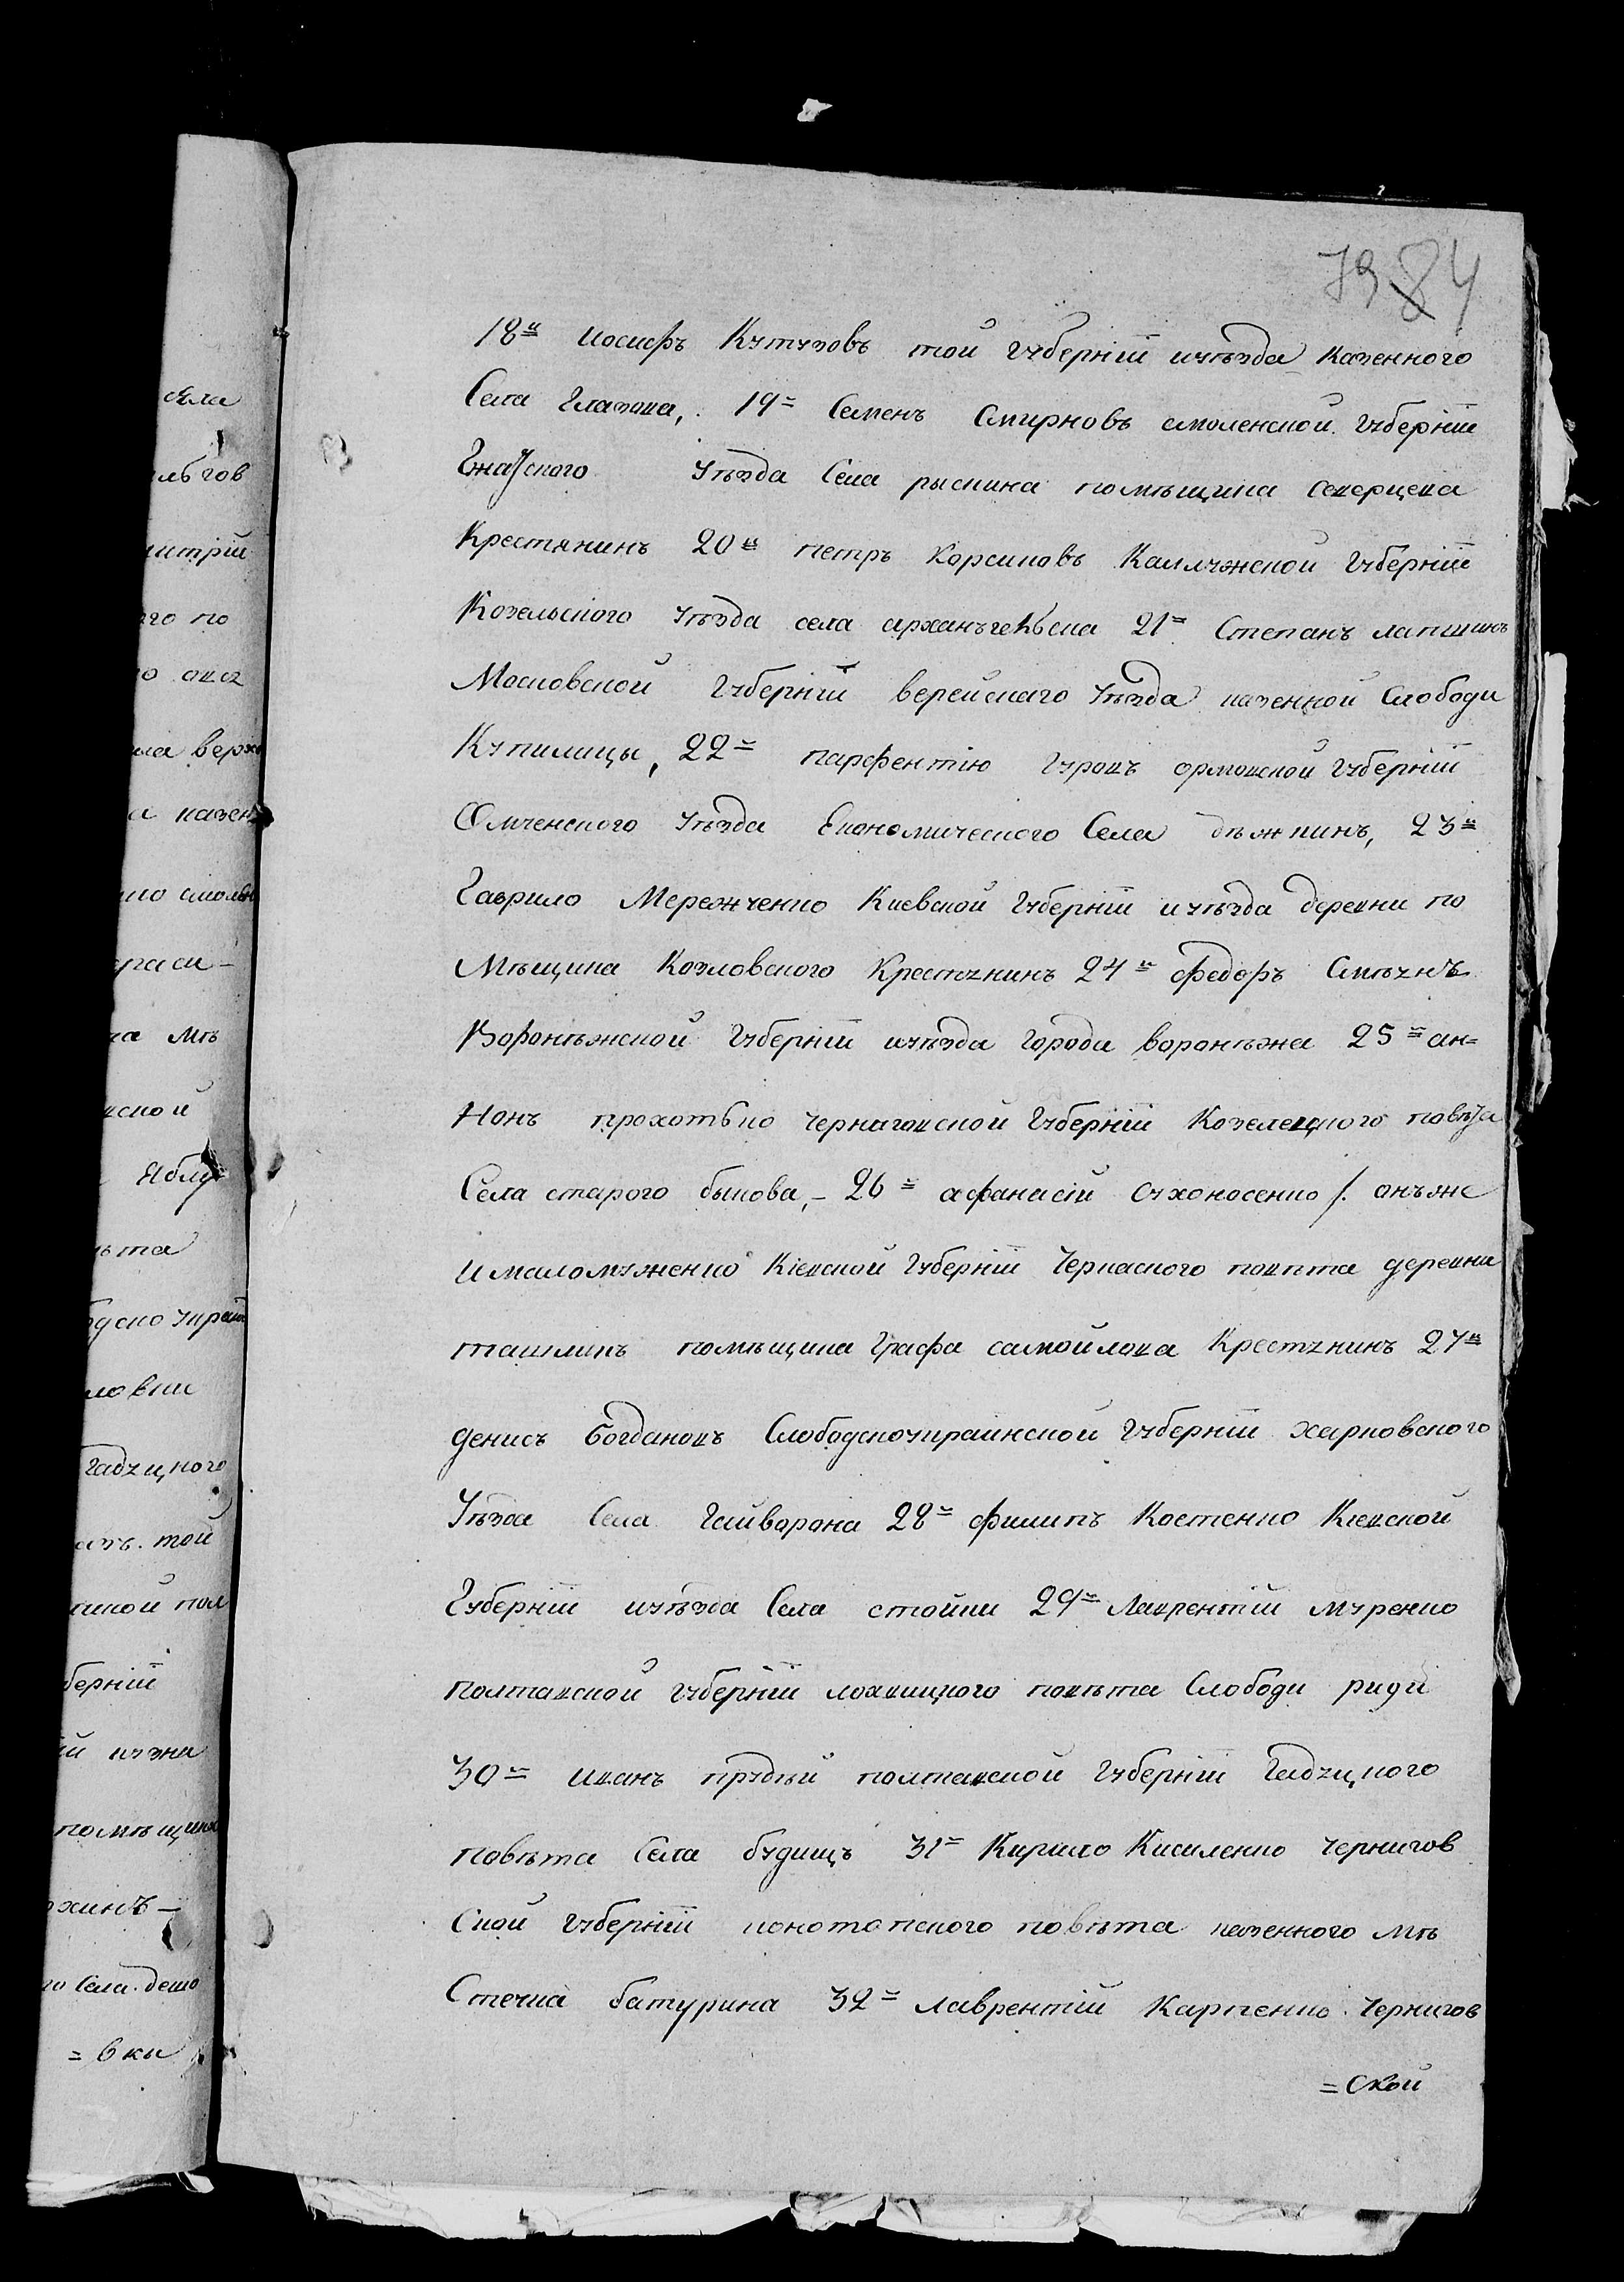 79 84
18й иосифъ Кутузовъ той губерніи иуѣзда казенного
Села глазова, 19й Семенъ Смирновъ смоленской губерніи
Гжатского Уѣзда Села рыскина помѣщика северцева
Крестянинъ 20й петръ Корсиковъ Каллужской губерніи
Козельского уѣзда села арханъгельска 21й Степанъ лапшинъ
Московской губерніи верейскаго уѣзда казенной Слободи
Купилицы, 22й парфентію гуровъ орловской губерніи
Омченского уѣзда Економического Села дѣжкинъ, 23й
Гаврило Мережченко Киевской губерніи иуѣзда деревни по
Мѣщика Козловского Крестянинъ 24й федоръ
Воронѣжской губерніи иуѣзда города воронѣжа 25й ан=
Нонъ прохотько черниговской губерніи Козелецкого повѣта
Села старого быкова,- 26й афанасій Сухоносенко /. онъже
ималомуженко Кіевской губерніи Черкаского повѣта деревни
ташликъ помѣщика Графа самойлова Крестянинъ 27й
денисъ Богдановъ Слободскоукраинской губерніи харковского
Уѣзда Села Гайворона 28й филипъ Костенко Кіевской
Губерніи иуѣзда Села стойки 29й Лаврентій Муренко
полтавской губерніи лохвицкого повѣта Слободи риди
30й иванъ прудкій полтавской губерніи Гадяцкого
повѣта Села будищъ 31й Кирило Кисиленко чернигов
Ской губерніи конотопского повѣта казенного мѣ
Стечка батурина 32й лаврентій Карпенко чернигов
=Ской
села
льгов
митрій
ого по
ла верхо
а казен
но смолен
на мѣ
вской
Яблу
ѣта
бодско украи
ловки
Гадяцкого
той
ской пол
берніи
помѣщика
хинъ-
го Села. дешо
=вки